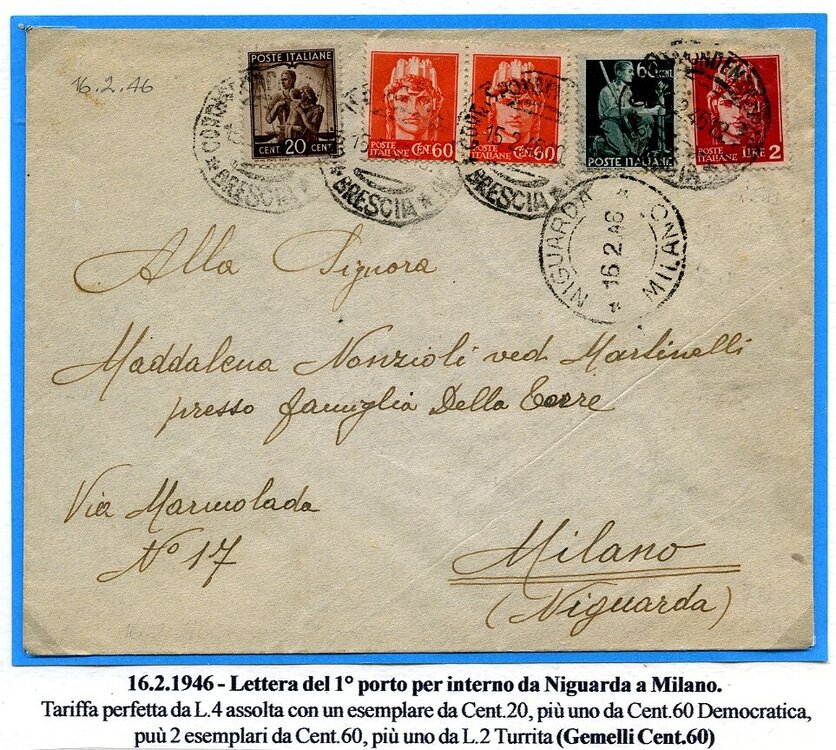 16.2.46
POSTE ITALIANE
CENT 20 CENT
POSTE ITALIANE CEN. 60
POSTE ITALIANE CEN. 60
60 CENT.
POSTE ITALIANE
POSTE ITALIANE LIRE 2
BRESCIA
BRESCIA
BRESCIA
15.2
NIGUARDA * MILANO *
16.2.46
Alla Signora
Maddalena Nonzioli ved Martinelli
presso famiglia Della Torre
Via Marmolada
N° 17
Milano
(Niguarda)
16.2.1946 - Lettera del 1° porto per interno da Niguarda a Milano.
Tariffa perfetta da L.4 assolta con un esemplare da Cent.20, più uno da Cent.60 Democratica,
puù 2 esemplari da Cent.60, più uno da L.2 Turrita (Gemelli Cent.60)